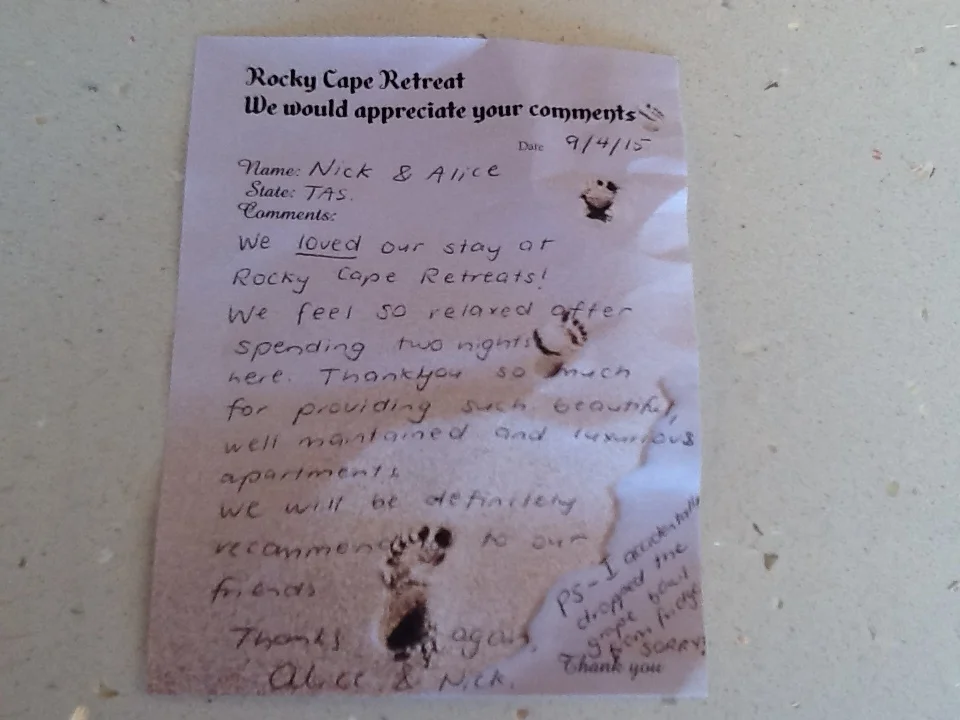 Rocky Cape Retreat
We would appreciate your comments
Date 9/4/15
Name: Nick & Alice
State: TAS.
Comments:
We loved our stay at
Rocky Cape Retreats!
We feel so relaxed after
spending two nights
here. Thankyou so much
for providing such beautiful,
well maintained and luxurious
apartments.
We will be definitely
recommending to our
friends
Thanks again,
Alice & Nick.
PS-I accidentally
dropped the
grape bowl
from fridge
SORRY!
Thank you